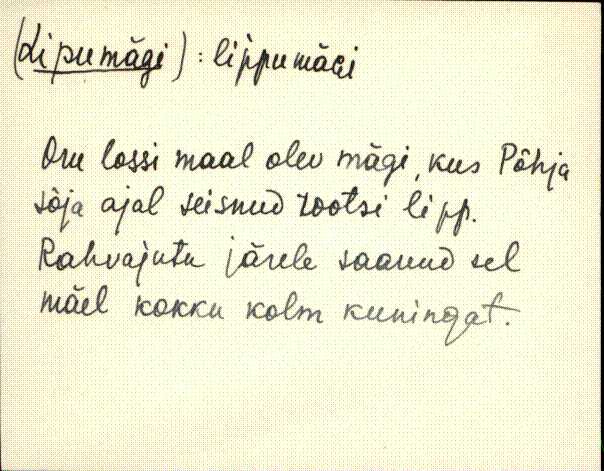 (Lipumägi) : lippumäɢi
Oru lossi maal olev mägi, kus Põhja
sõja ajal seisnud rootsi lipp.
Rahvajutu järele saanud sel
mäel kokku kolm kuningat.